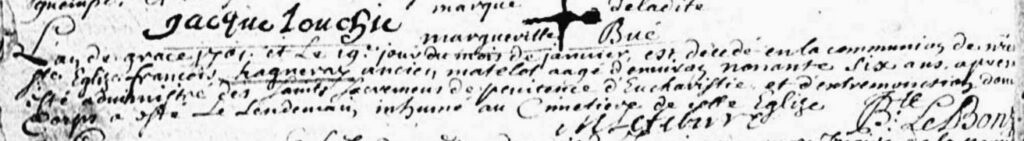 marque deladite
Jacque Louchie
marqueville Bué
L'an de grace 1701 et Le 19: jour du mois de Janvier est décédé en la communion de
Ste Eglise francois ancien matelot aagé d'environ nonante six ans apres
esté administré des saints sacremens de penitence d'Eucharistie et d'extremonction dont
Corps a esté Le Lendemain inhumé au Cimetiere de cette Eglise
M Lefebvre Bte LeBon